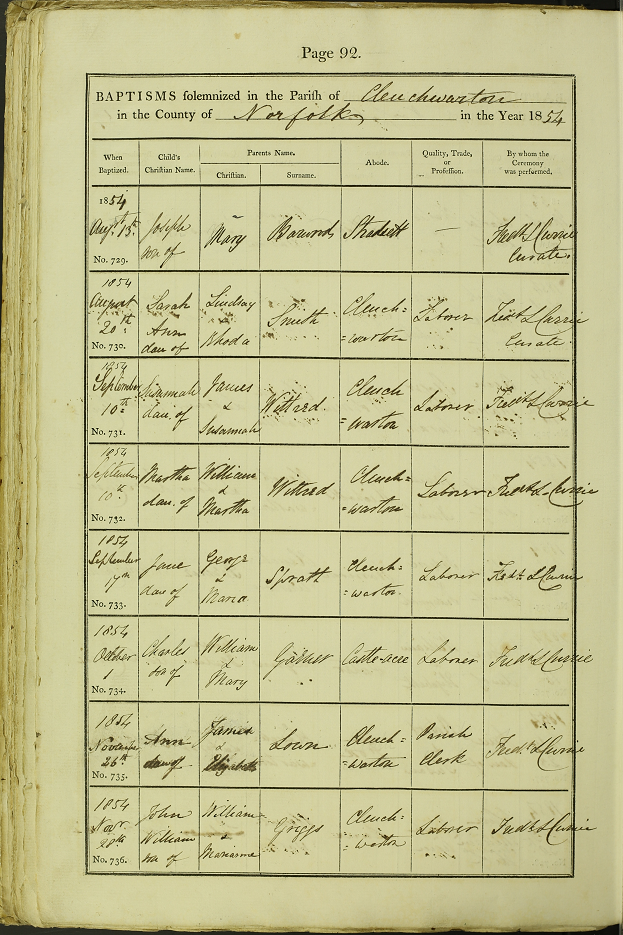 Page 92.
BAPTISMS solemnized in the Parish of Clenchwarton
in the County of Norfolk in the Year 1854
When Baptized. Child's Christian Name. Parents Name. Abode. Quality, Trade, or Profession. By whom the Ceremony was performed.
Christian. Surname.
1854
Augst. 13th. Joseph son of Mary Stradsett — Fredk. L Currie Curate
No. 729.
1854
August 20th. Sarah Ann dau of Lindsay & Rhoda Smith Clench=warton Laborer Fredk L Currie Curate
No. 730.
1854
September 10th. Susannah dau. of James & Susannah Wittred Clench=warton Laborer Fredk L Currie
No. 731.
1854
September 10th. Martha dau. of William & Martha Wittred Clench=warton Laborer Fredk L Currie
No. 732.
1854
September 17th Jane dau of George & Maria Spratt Clench=warton Laborer Fredk L Currie
No. 733.
1854
October 1 Charles son of William & Mary Garner Castle-acre Laborer Fredk L Currie
No. 734.
1854
November 26th Ann dau of James & Elizabeth Lown Clench=warton Parish Clerk Fredk. L Currie
No. 735.
1854
Novr. 28th John William son of William & Marianne Griggs Clench=warton Laborer Fredk L Currie
No. 736.